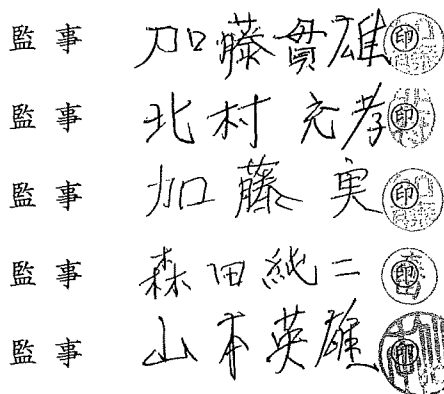 監事 加藤貫雄 印
監事 北村充孝 印
監事 加藤実 印
監事 森田純二 印
監事 山本英雄 印